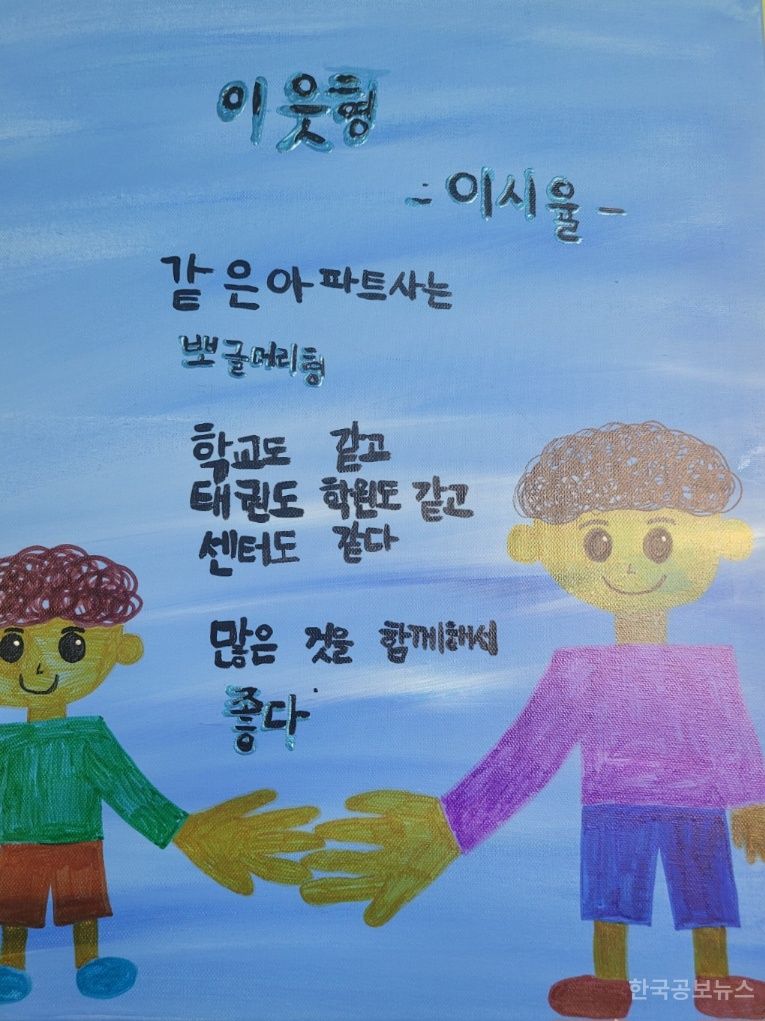 이웃형
- 이시율 -
같은아파트사는
뽀글머리형
학교도 같고
태권도 학원도 같고
센터도 같다
많은 것을 함께해서
좋다
한국공보뉴스